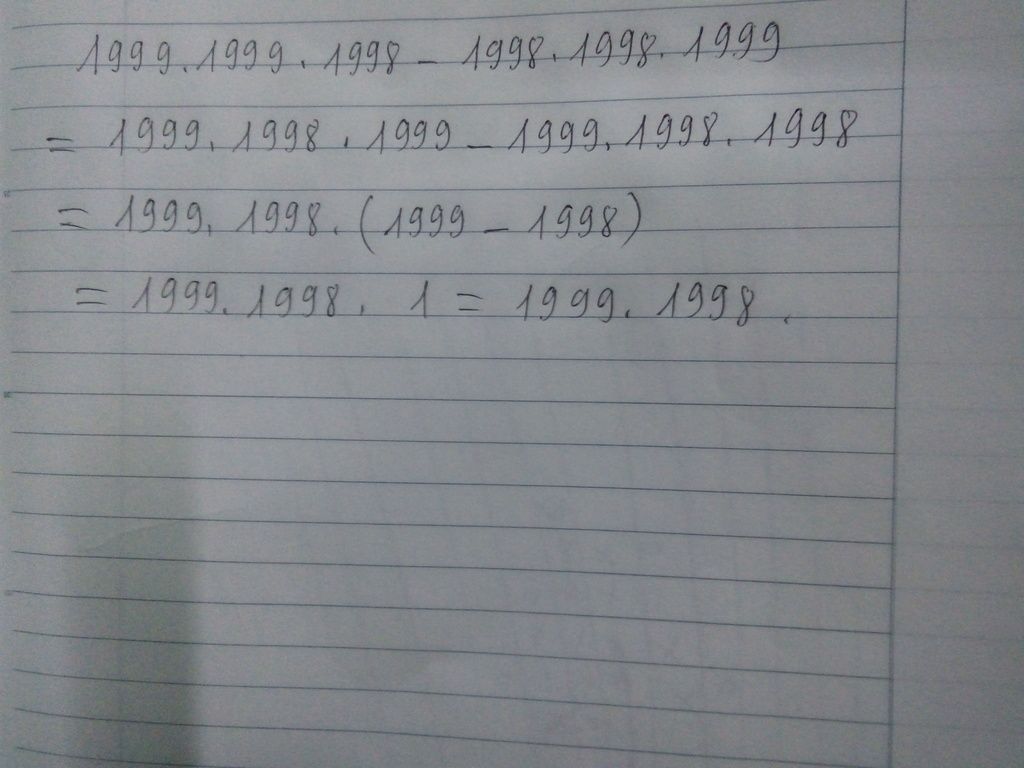 1999.1999.1998-1998.1998.1999
= 1999.1998.1999-1999.1998.1998
= 1999.1998.(1999-1998)
= 1999.1998.1=1999.1998.